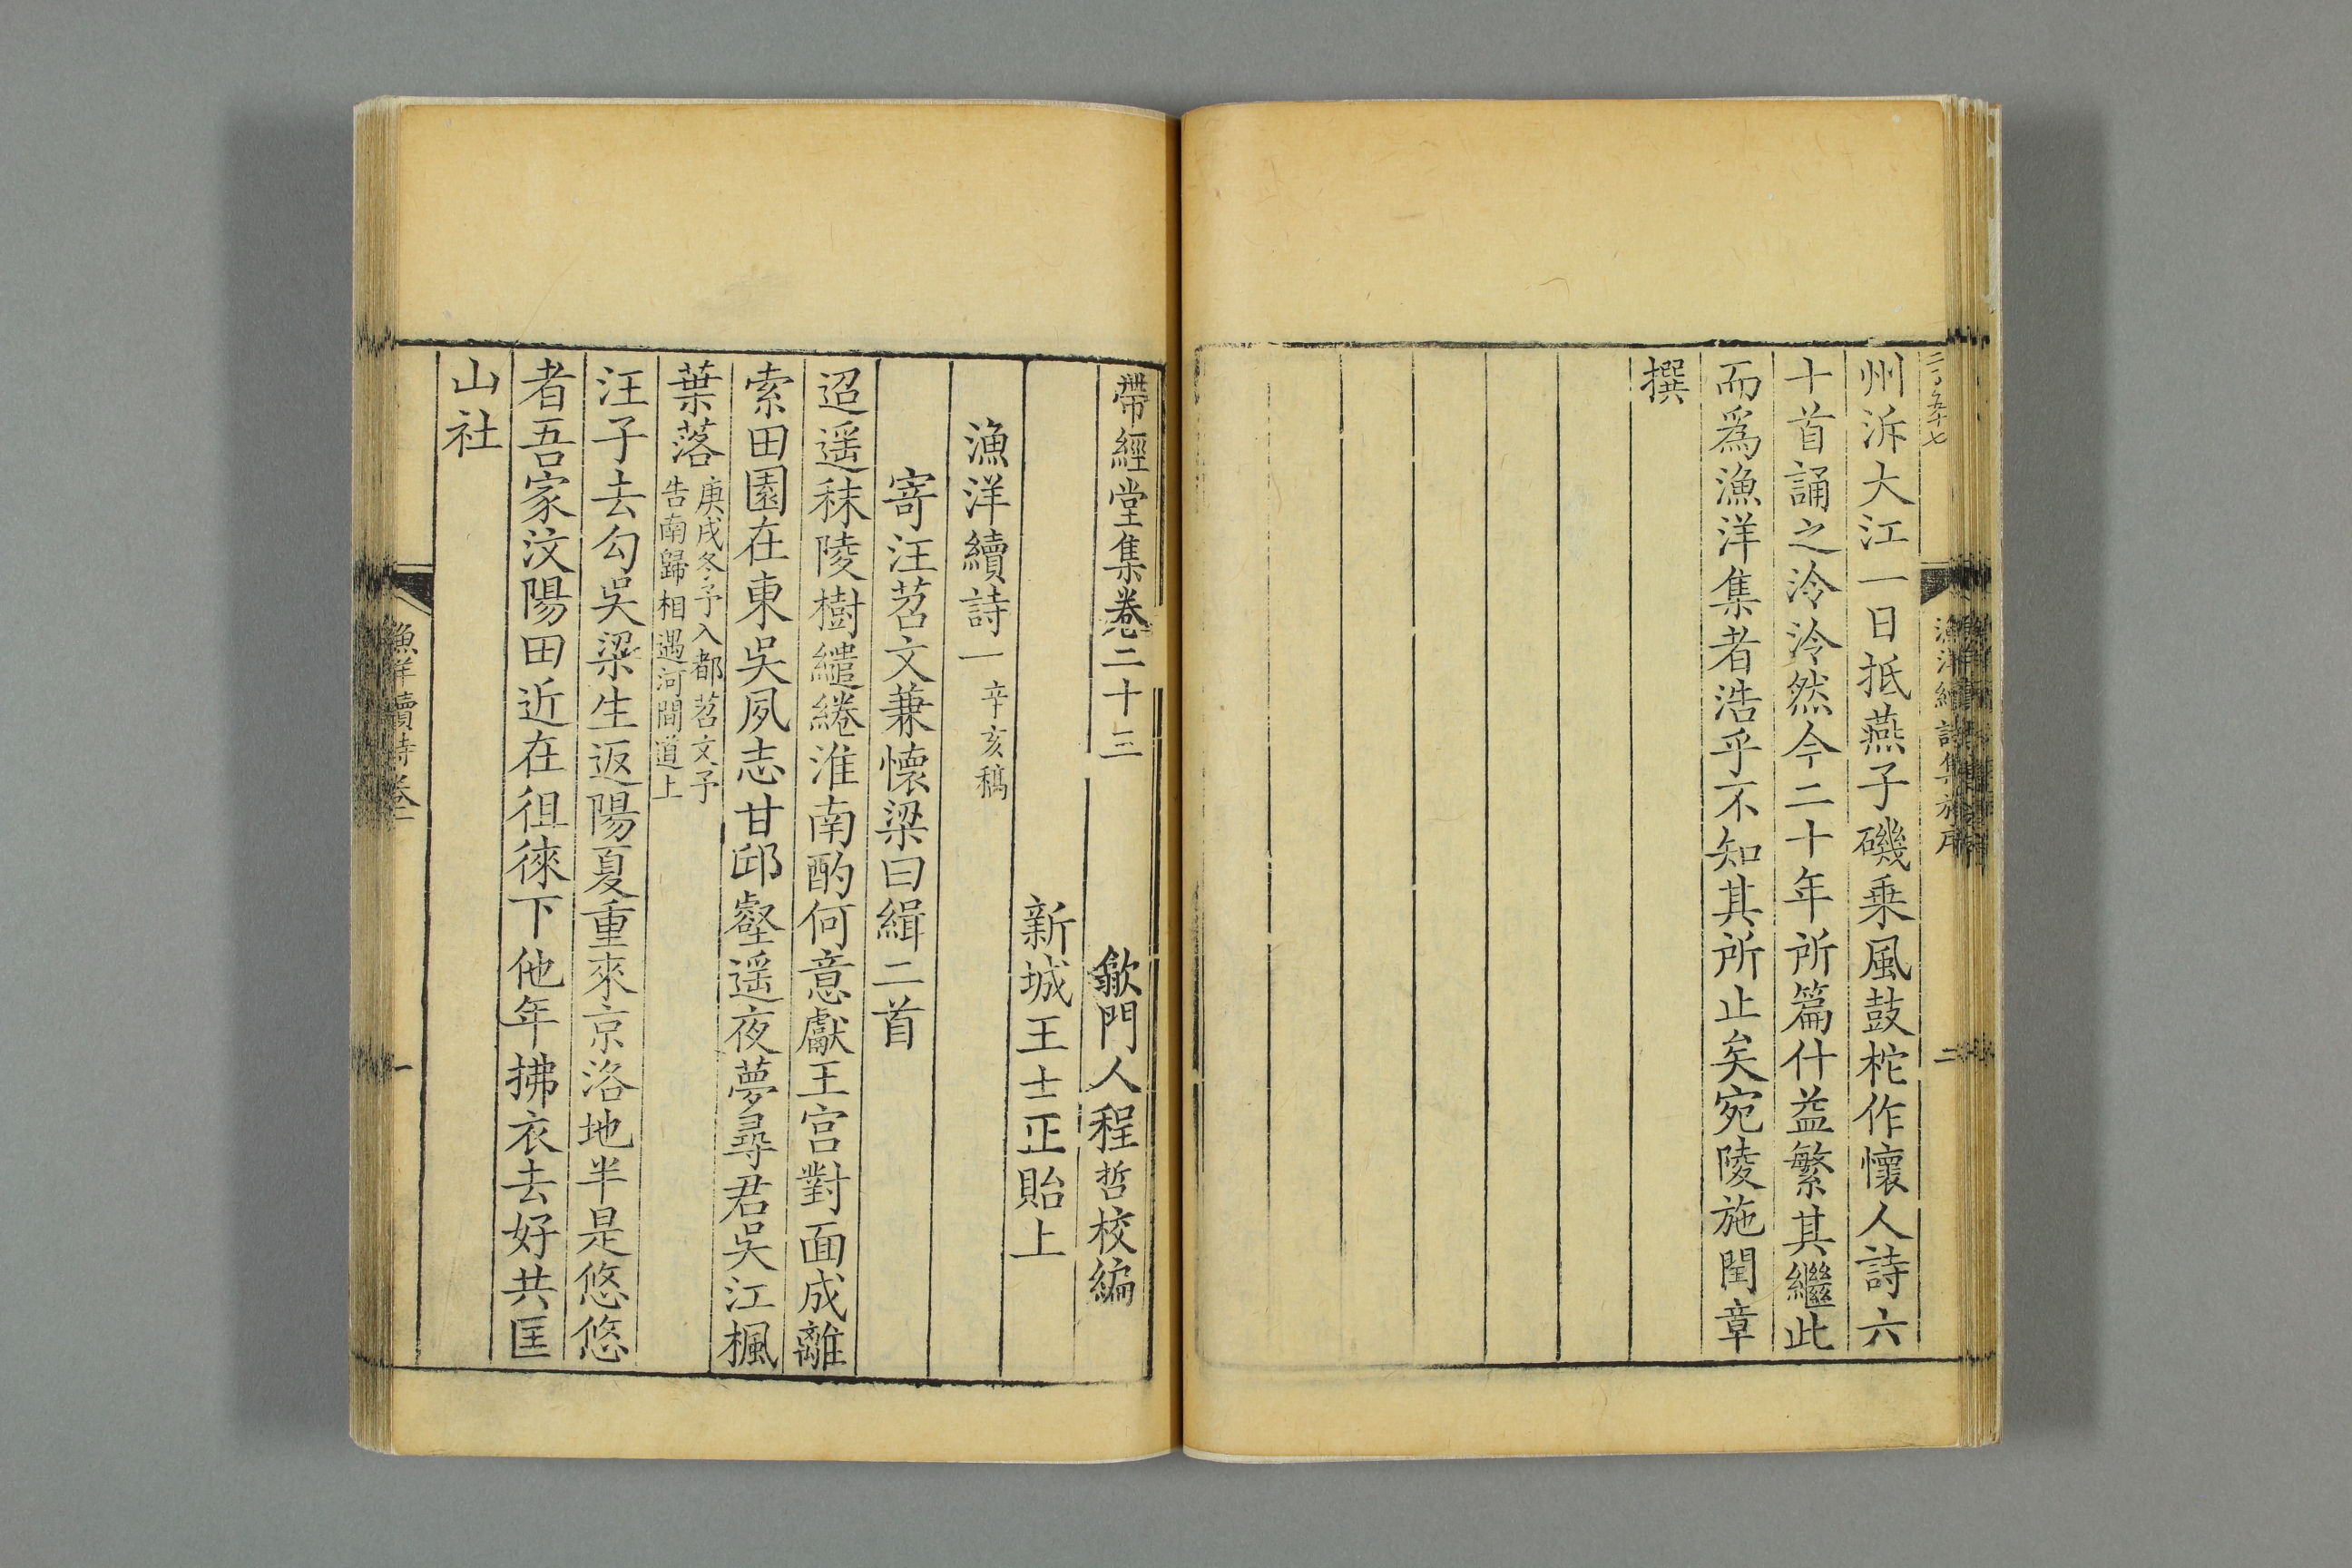 州泝大江一日抵燕子磯乗風鼓柁作懷人詩六
十首誦之泠泠然今二十年所篇什益繁其繼此
而爲漁洋集者浩乎不知其所止矣宛陵施閏章
撰
二
帶經堂集卷二十三
歙門人程哲校編
新城王士正貽上
漁洋續詩一 辛亥稿
寄汪苕文兼懷梁曰緝二首
迢遥秣陵樹繾綣淮南酌何意獻王宫對面成離
索田園在東吳夙志甘邱壑遥夜夢尋君吳江楓
葉落 庚戌冬予入都苕文予
告南歸相遇河間道上
汪子去勾吳梁生返陽夏重來京洛地半是悠悠
者吾家汶陽田近在徂徠下他年拂衣去好共匡
山社
漁洋續詩卷一
一